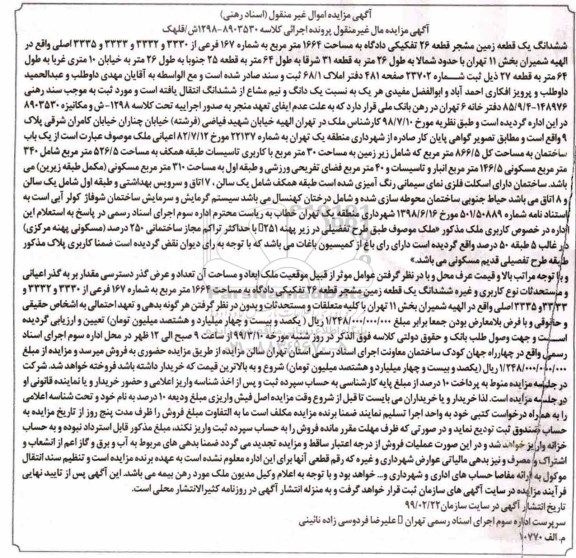 آگهی مزایده اموال غیر منقول (اسناد رهنی)
آگهی مزایده مال غیرمنقول پرونده اجرائی کلاسه ۸۹۰۳۵۳۰-۱۲۹۸ش/قلهک
ششدانگ یک قطعه زمین مشجر قطعه ۲۶ تفکیکی دادگاه به مساحت ۱۶۶۴ متر مربع به شماره ۱۶۷ فرعی از ۳۳۳۰ و ۳۳۳۲ و ۳۳۳۳ و ۳۳۳۵ اصلی واقع در
الهیه شمیران بخش ۱۱ تهران با حدود شمالا به طول ۲۶ متر به قطعه ۳۱ شرقا به طول ۶۴ متر به قطعه ۲۵ جنوبا به طول ۲۶ متر به خیابان ۱۰ متری غربا به طول
۶۴ متر به قطعه ۲۷ ذیل ثبت شماره ۲۳۷۰۲ صفحه ۴۸۱ دفتر املاک ۶۸/۱ ثبت و سند صادر شده است و مع الواسطه به آقایان مهدی داوطلب و عبدالحمید
داوطلب و پرویز افکاری احمد آباد و ابوالفضل مفیدی هر یک به نسبت یک دانگ و نیم مشاع از ششدانگ انتقال یافته است و مورد ثبت به موجب سند رهنی
۱۴۸۹۷۶-۸۵/۹/۴ دفتر خانه ۶ تهران در رهن بانک ملی قرار دارد که به علت عدم ایفای تعهد منجر به صدور اجراییه تحت کلاسه ۱۲۹۸-ش و مکانیزه ۸۹۰۳۵۳۰
در این اداره گردیده است و طبق نظریه مورخ ۹۸/۷/۱۰ کارشناس ملک در تهران الهیه خیابان شهید فیاضی (فرشته) خیابان چناران خیابان کامران شرقی پلاک
۹ واقع است و مطابق تصویر گواهی پایان کار صادره از شهرداری منطقه یک تهران به شماره ۲۲۱۳۷ مورخ ۸۲/۷/۱۲ اعیانی ملک موصوف عبارت است از یک باب
ساختمان به مساحت کل ۸۶۶/۵ متر مربع که شامل زیر زمین به مساحت ۳۰ متر مربع با کاربری تاسیسات طبقه همکف به مساحت ۵۲۶/۵ متر مربع شامل ۳۴۰
متر مربع مسکونی ۱۴۶/۵ متر مربع انبار و تاسیسات و ۴۰ متر مربع فضای تفریحی ورزشی و طبقه اول به مساحت ۳۱۰ متر مربع مسکونی (مکمل طبقه زیرین) می
باشد. ساختمان دارای اسکلت فلزی نمای سیمانی رنگ آمیزی شده است طبقه همکف شامل یک سالن، ۷ اتاق و سرویس بهداشتی و طبقه اول شامل یک سالن
و ۸ اتاق می باشد حیاط جنوبی ساختمان محوطه سازی شده و شامل درختان کهنسال می باشد سیستم گرمایش و سرمایش ساختمان شوفاژ کولر آبی است به
استناد نامه شماره ۵۰۱/۵۰۸۸۹ مورخ ۱۳۹۸/۶/۱۶ شهرداری منطقه یک تهران خطاب به ریاست محترم اداره سوم اجرای اسناد رسمی در پاسخ به استعلام این
اداره در خصوص کاربری ملک مذکور «ملک موصوف طبق طرح تفصیلی در زیر پهنه r۲۵۱ با حداکثر تراکم مجاز ساختمانی ۲۵۰ درصد (مسکونی پهنه مرکزی)
در غالب ۵ طبقه ۵۰ درصد واقع گردیده است دارای رای باغ از کمیسیون باغات می باشد که با توجه به رای دیوان نقض گردیده است ضمنا کاربری پلاک مذکور
طبقه طرح تفصیلی قدیم مسکونی می باشد.»
و با توجه مراتب بالا و قیمت عرف محل و با در نظر گرفتن عوامل موثر از قبیل موقعیت ملک ابعاد و مساحت آن تعداد و عرض گذر دسترسی مقدار بر به گذر اعیانی
و مستحدثات نوع کاربری و غیره ششدانگ یک قطعه زمین مشجر قطعه ۲۶ تفکیکی دادگاه به مساحت ۱۶۶۴ متر مربع به شماره ۱۶۷ فرعی از ۳۳۳۰ و ۳۳۳۲ و
۳۳۳۳ و ۳۳۳۵ اصلی واقع در الهیه شمیران بخش ۱۱ تهران با کلیه متعلقات و مستحدثات و بدون در نظر گرفتن هر گونه بدهی و تعهد احتمالی به اشخاص حقیقی
و حقوقی و با فرض بلامعارض بودن جمعا برابر مبلغ ۱/۲۴۸/۰۰۰/۰۰۰/۰۰۰ ریال (یکصد و بیست و چهار میلیارد و هشتصد میلیون تومان) تعیین و ارزیابی گردیده
است و جهت وصول طلب بانک و حقوق دولتی کلاسه فوق الذکر در روز شنبه مورخه ۹۹/۳/۱۰ از ساعت ۹ صبح الی ۱۲ ظهر در محل اداره سوم اجرای اسناد
رسمی واقع در چهارراه جهان کودک ساختمان معاونت اجرای اسناد رسمی استان تهران سالن مزایده از طریق مزایده حضوری به فروش میرسد و مزایده از مبلغ
۱/۲۴۸/۰۰۰/۰۰۰/۰۰۰ ریال (یکصد و بیست و چهار میلیارد و هشتصد میلیون تومان) شروع و به بالاترین قیمت که خریدار داشته باشد فروخته خواهد شد. شرکت
در جلسه مزایده منوط به پرداخت ۱۰ درصد از مبلغ پایه کارشناسی به حساب سپرده ثبت و پس از اخذ شناسه واریز اعلامی و حضور خریدار و یا نماینده قانونی او
در جلسه مزایده است. لذا خریدار و یا خریداران می بایست تا قبل از شروع وقت مزایده اصل فیش واریزی مبلغ ودیعه ۱۰ درصد به نام خود و تحت شناسه اعلامی
را به همراه درخواست کتبی خود به واحد اجرا تسلیم نمایند ضمنا برنده مزایده مکلف است ما به التفاوت مبلغ فروش را ظرف مدت پنج روز از تاریخ مزایده به
حساب صندوق ثبت تودیع نماید و در صورتی که ظرف مهلت مقرر مانده فروش را به حساب سپرده ثبت واریز نکند، مبلغ مذکور قابل استرداد نبوده و به حساب
خزانه واریز خواهد شد و در این صورت عملیات فروش از درجه اعتبار ساقط و مزایده تجدید می گردد ضمنا بدهی های مربوط به آب و برق و گاز اعم از انشعاب و
اشتراک و مصرف و نیز بدهی مالیاتی عوارض شهرداری و غیره که رقم قطعی آنها برای این اداره معلوم نشده است به عهده برنده مزایده است و تنظیم سند انتقال
موکول به ارائه مفاصا حساب های اداری و شهرداری و.. خواهد بود و با توجه به اعلام وکیل مدیون ملک مورد رهن بیمه می باشد. این آگهی پس از تایید نهایی
فرآیند مزایده در سایت آگهی های سازمان ثبت قرار خواهد گرفت و به منزله انتشار آگهی در روزنامه کثیرالانتشار محلی است.
تاریخ انتشار آگهی در سایت سازمان ۹۹/۰۲/۲۲
سرپرست اداره سوم اجرای اسناد رسمی تهران علیرضا فردوسی زاده نائینی
م. الف ۱۰۷۷۰